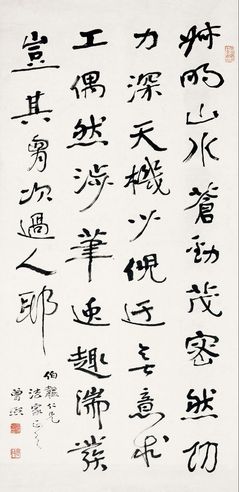 叔明山水蒼勁茂密然功
力深天機少倪迂无意求
工偶然涉筆逸趣湍發
豈其胷次過人耶
伯仁兄
法家正之
曾熙